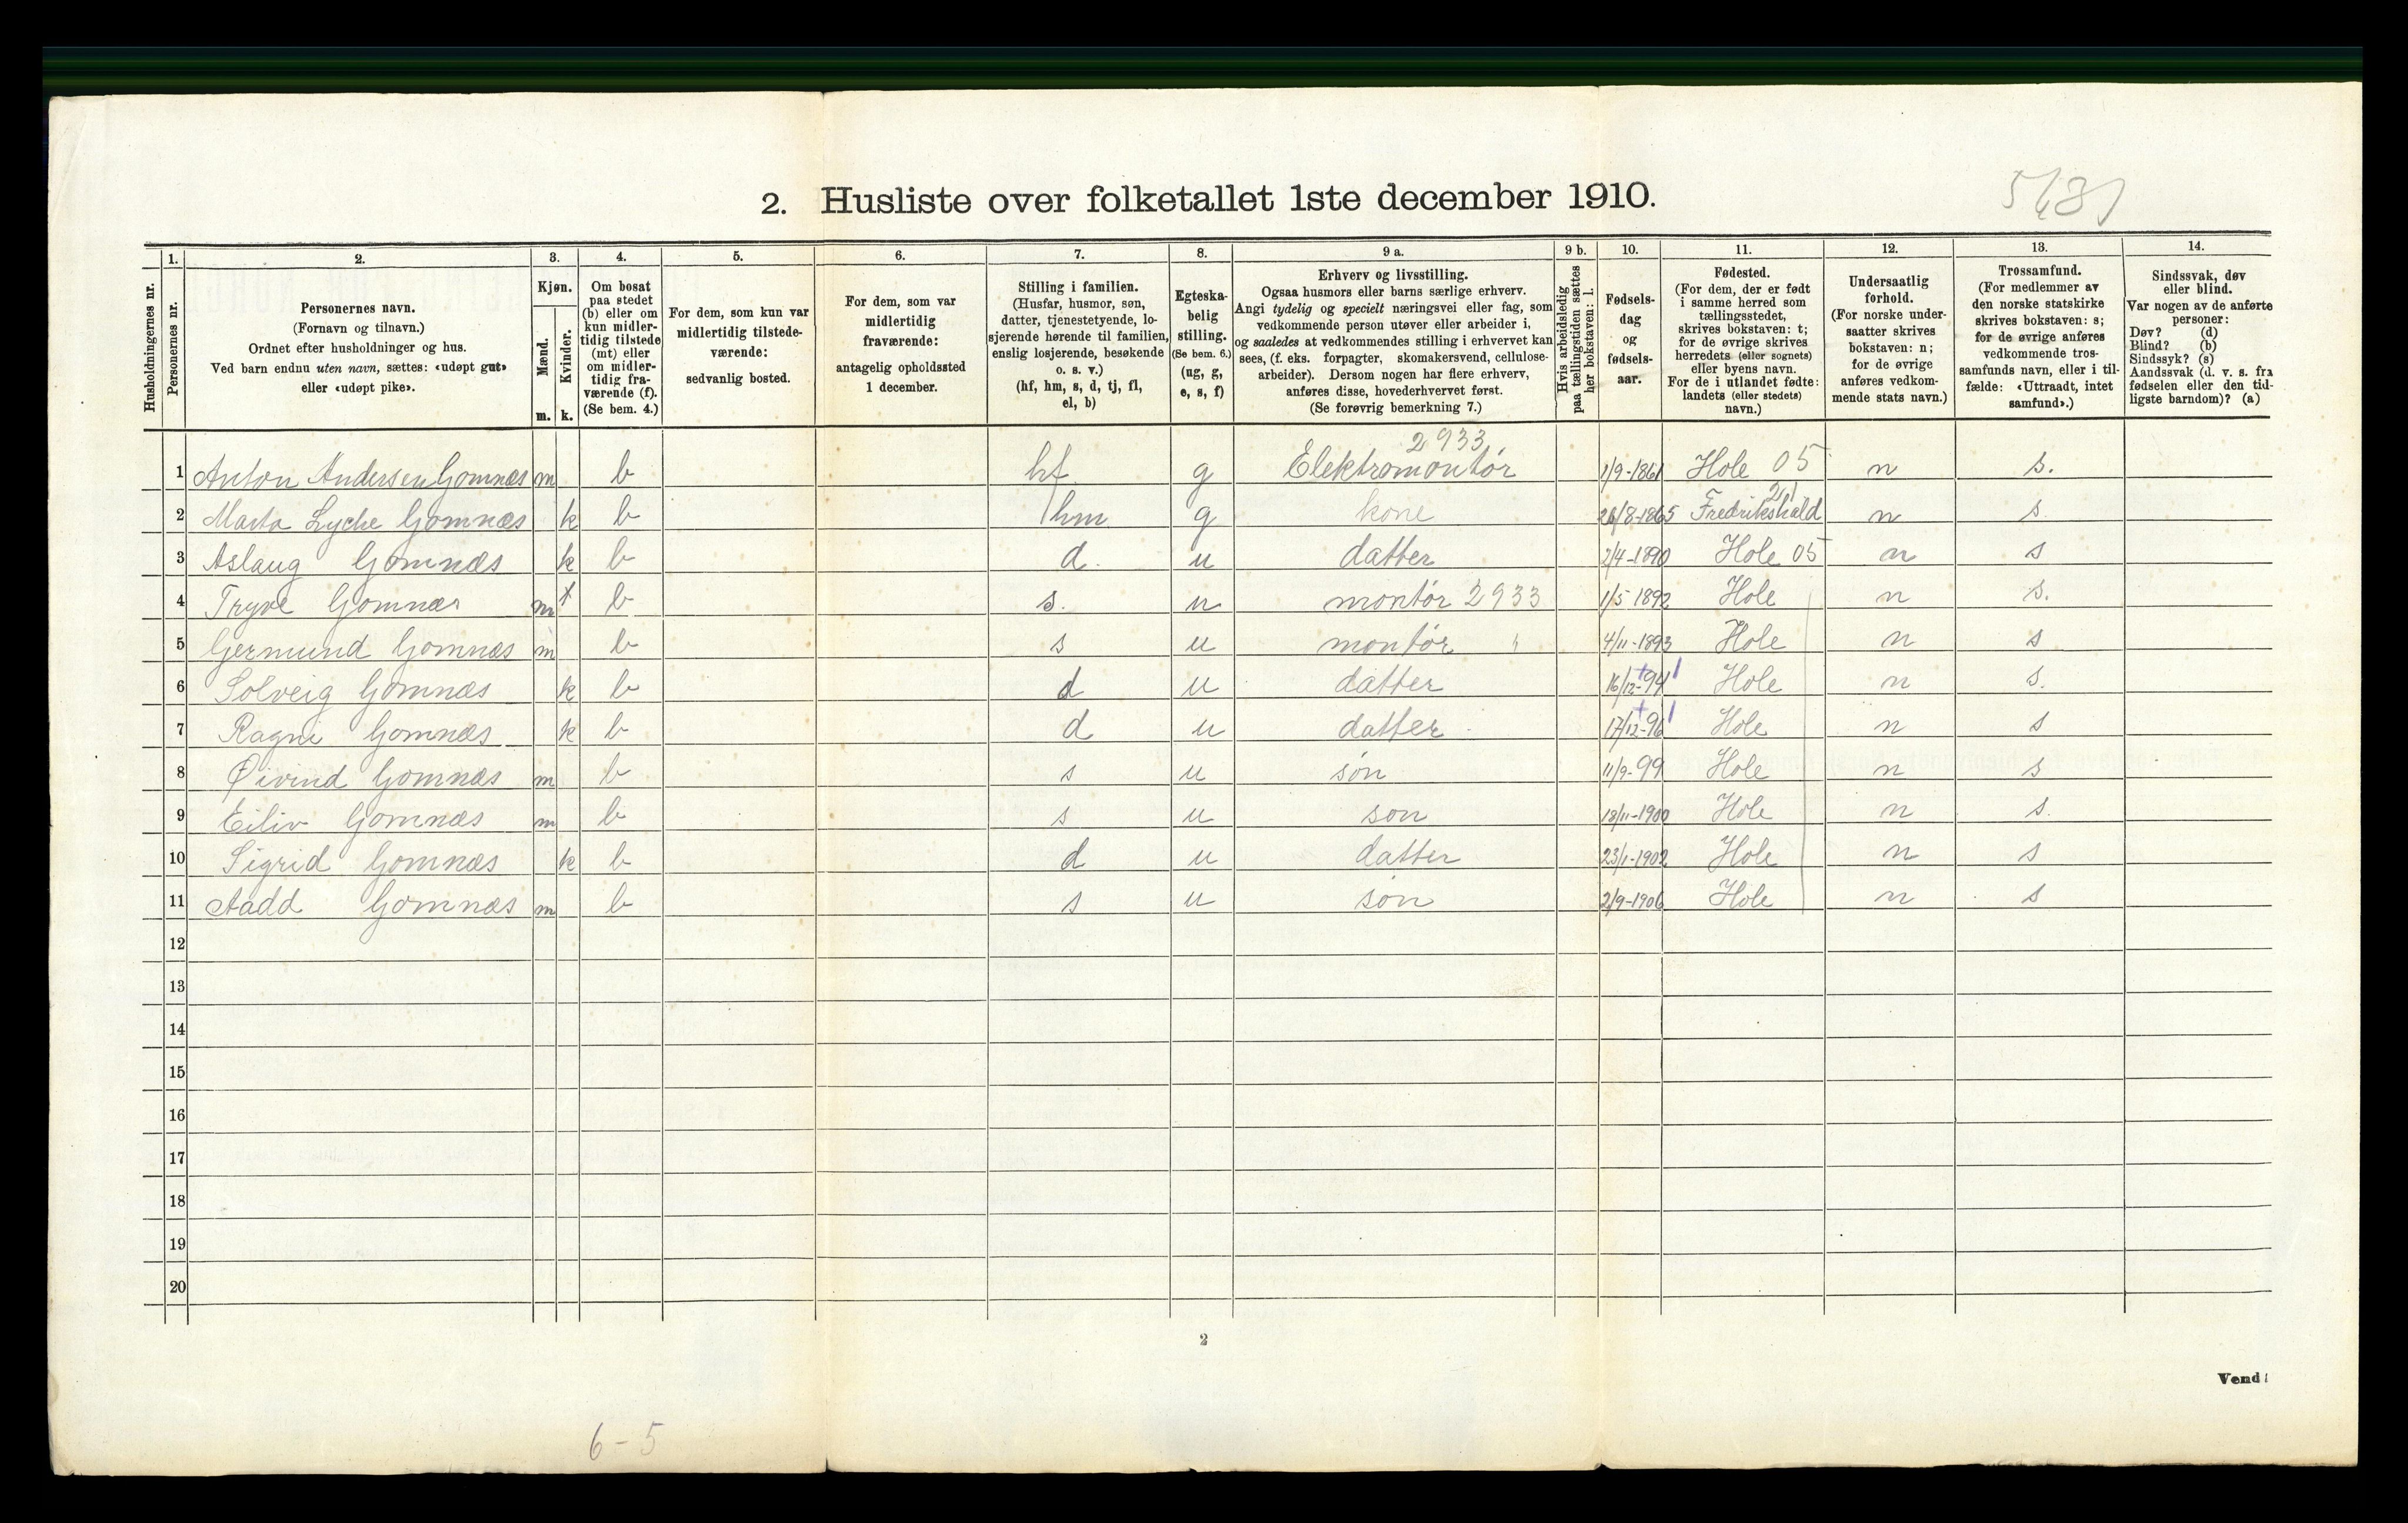 2. Husliste over folketallet 1ste december 1910.
Husholdningernes nr.
1. Personernes nr.
2. Personernes navn.
(Fornavn og tilnavn.)
Ordnet efter husholdninger og hus.
Ved barn endnu uten navn, sættes: «udøpt gut»
eller «udøpt pike».
3. Kjøn.
Mænd. m.
Kvinder. k.
4. Om bosat
paa stedet
(b) eller om
kun midler-
tidig tilstede
(mt) eller
om midler-
tidig fra-
værende (f).
(Se bem. 4.)
5. For dem, som kun var
midlertidig tilstede-
værende:
sedvanlig bosted.
6. For dem, som var
midlertidig
fraværende:
antagelig opholdssted
1 december.
7. Stilling i familien.
(Husfar, husmor, søn,
datter, tjenestetyende, lo-
sjerende hørende til familien,
enslig losjerende, besøkende
o. s. v.)
(hf, hm, s, d, tj, fl,
el, b)
8. Egteska-
belig
stilling.
(Se bem. 6.)
(ug, g,
e, s, f)
9 a. Erhverv og livsstilling.
Ogsaa husmors eller barns særlige erhverv.
Angi tydelig og specielt næringsvei eller fag, som
vedkommende person utøver eller arbeider i,
og saaledes at vedkommendes stilling i erhvervet kan
sees, (f. eks. forpagter, skomakersvend, cellulose-
arbeider). Dersom nogen har flere erhverv,
anføres disse, hovederhvervet først.
(Se forøvrig bemerkning 7.)
9 b. Hvis arbeidsledig
paa tællingstiden sættes
her bokstaven: l.
10. Fødsels-
dag
og
fødsels-
aar.
11. Fødested.
(For dem, der er født
i samme herred som
tællingsstedet,
skrives bokstaven: t;
for de øvrige skrives
herredets (eller sognets)
eller byens navn.
For de i utlandet fødte:
landets (eller stedets)
navn.)
12. Undersaatlig
forhold.
(For norske under-
saatter skrives
bokstaven: n;
for de øvrige
anføres vedkom-
mende stats navn.)
13. Trossamfund.
(For medlemmer av
den norske statskirke
skrives bokstaven: s;
for de øvrige anføres
vedkommende tros-
samfunds navn, eller i til-
fælde: «Uttraadt, intet
samfund».)
14. Sindssvak, døv
eller blind.
Var nogen av de anførte
personer:
Døv? (d)
Blind? (b)
Sindssyk? (s)
Aandssvak (d. v. s. fra
fødselen eller den tid-
ligste barndom)? (a)
2933
1 Anton Andersen Gomnæs m b hf g Elektromontør 1/9-1861 Hole 05 n s.
2 Marta Lyche Gomnæs k b hm g kone 26/8-1865 Fredrikshald 21 n s
3 Aslaug Gomnæs k b d. u datter 2/4-1890 Hole 05 n s
4 Tryve Gomnæs m b s. u montør 2933 1/5-1892 Hole n s.
5 Germund Gomnæs m b s u montør " 4/11-1893 Hole n s
6 Solveig Gomnæs k b d u datter 16/12-94 Hole n s.
7 Ragni Gomnæs k b d u datter 17/12-96 Hole n s
8 Øivind Gomnæs m b s u søn 11/9-99 Hole n s
9 Eiliv Gomnæs m b s u søn 18/11-1900 Hole n s.
10 Sigrid Gomnæs k b d u datter 23/1-1902 Hole n s
11 Aadd Gomnæs m b s u søn 2/9-1906 Hole n s
12
13
14
15
16
17
18
19
20
2
Vend!
6-5